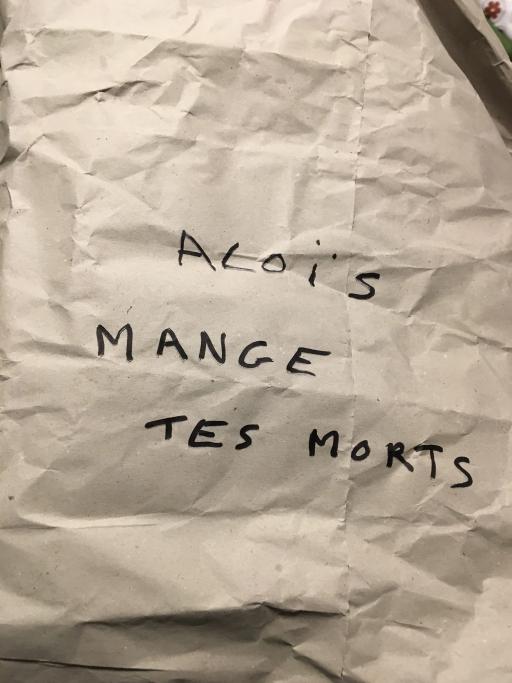 ALOïS
MANGE
TES MORTS